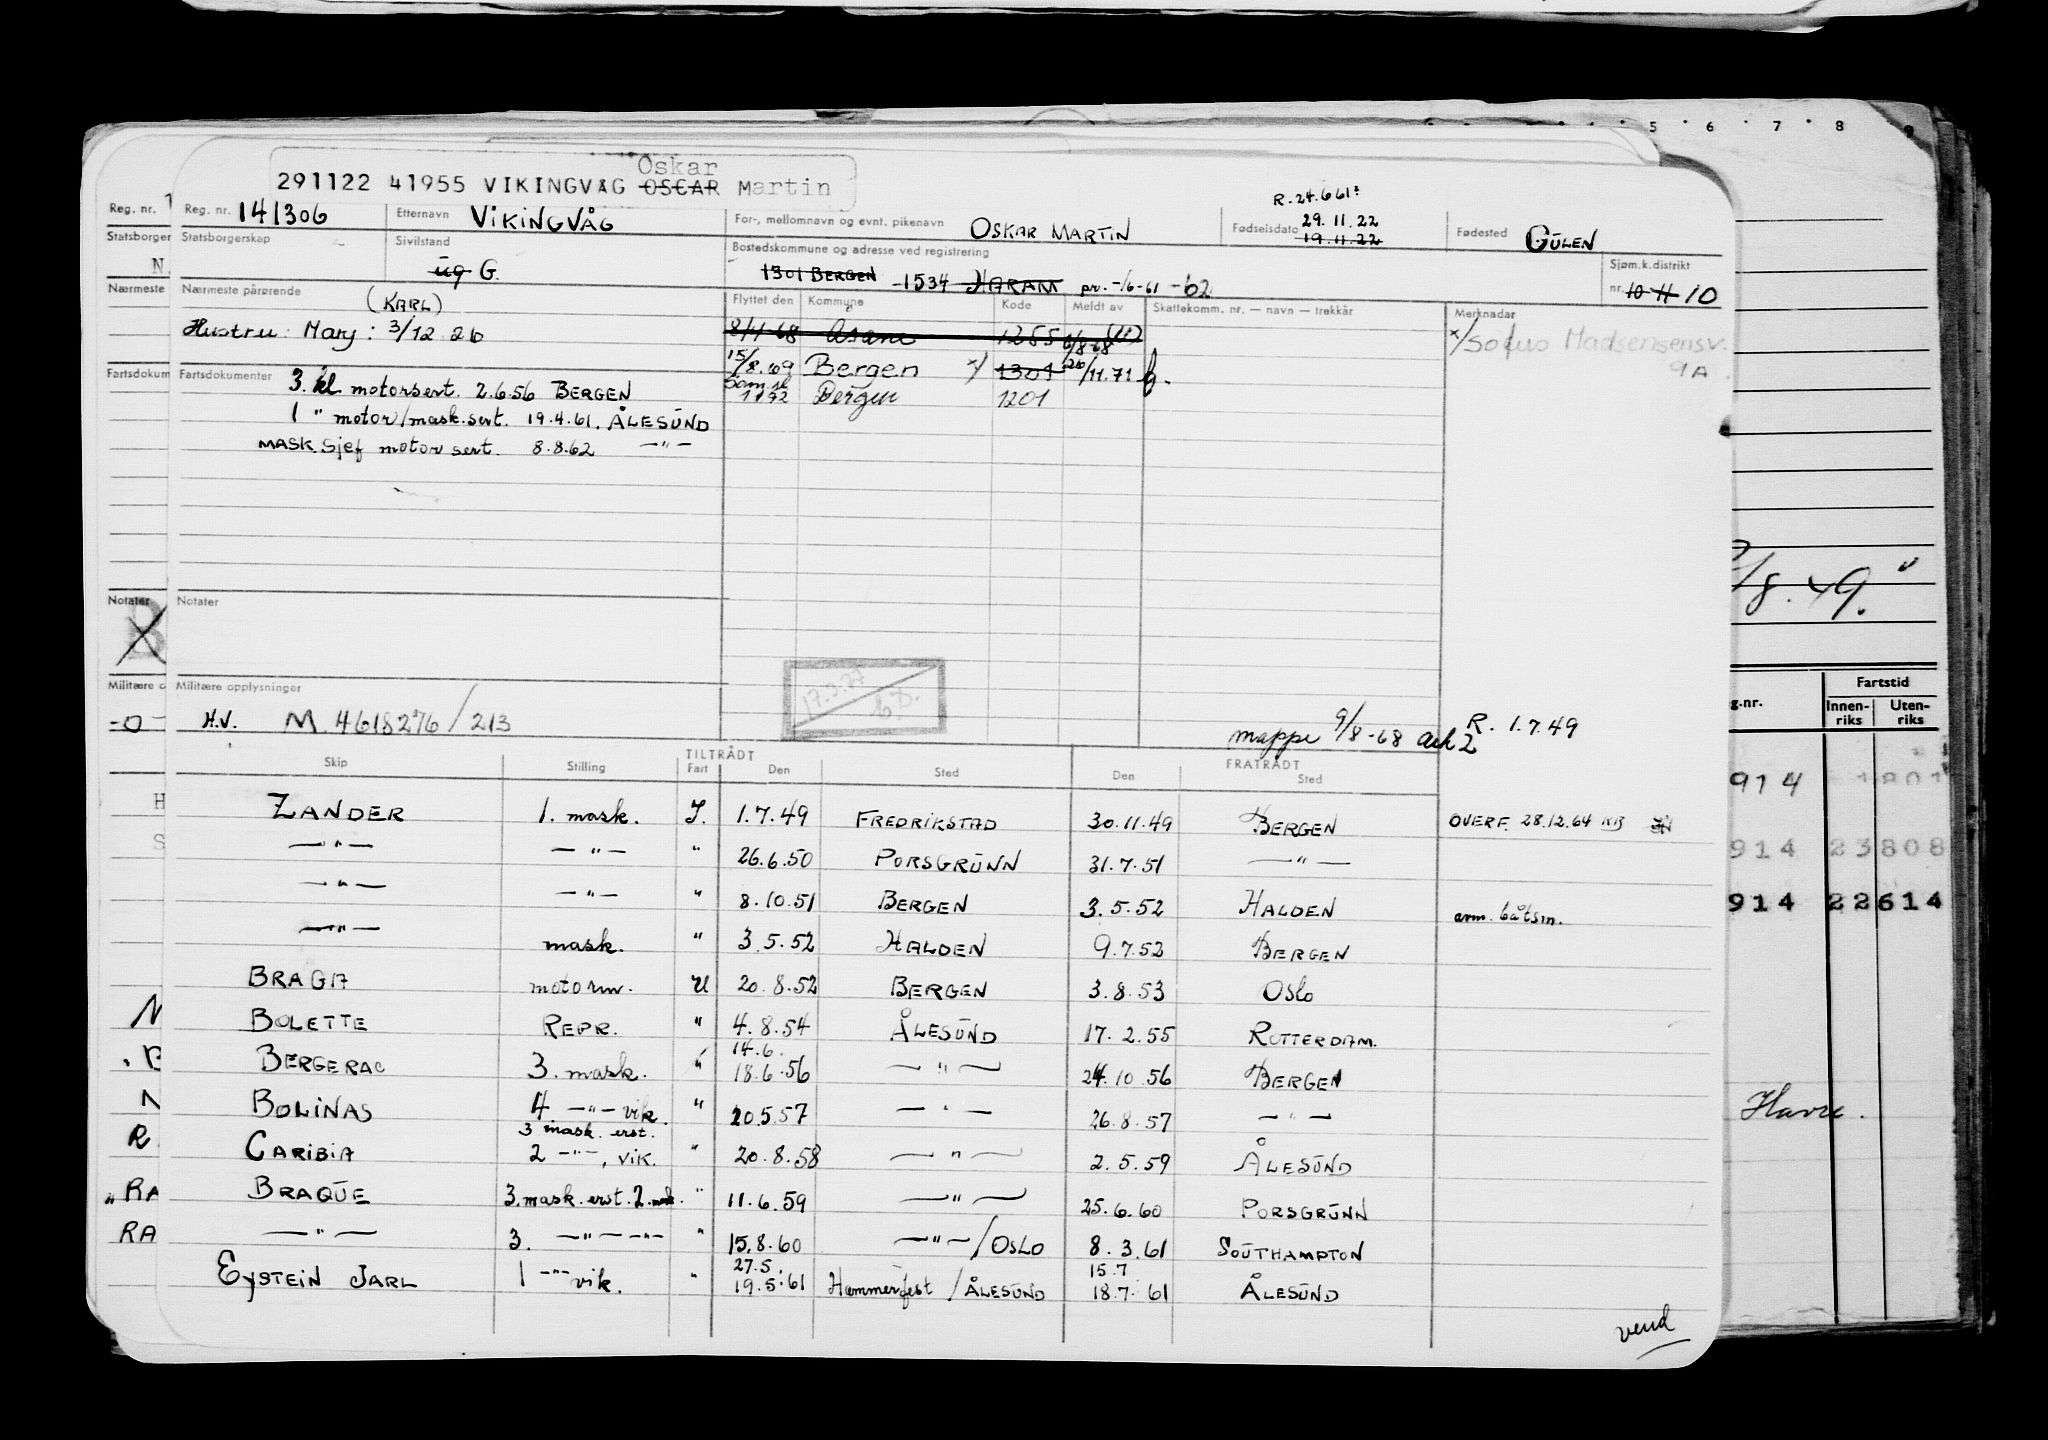 Oskar
291122 41955 VIKINGVÅG OSCAR Martin
R. 24.6 61
Reg. nr. 141306 Etternavn VIKINGVÅG For-, mellomnavn og evnt. pikenavn OSKAR MARTIN Fødselsdato 29.11.22 19.11.22 Fødested GULEN
Statsborgerskap Sivilstand ug G. Bostedskommune og adresse ved registrering 1301 BERGEN -1534 HARAM pr. -/6-61 -62 Sjøm.k.distrikt nr. 10 11 10
Nærmeste pårørende (KARL) Flyttet den Kommune Kode Meldt av Skattekomm. nr. — navn — trekkår Merknadar
Hustru: Mary: 3/12 26 8/4-68 Åsane 1255 6/8-68 x/ Sofus Madsensensv. 9A
Fartsdokumenter 3. kl motorsert. 2.6.56 BERGEN 15/8.69 Bergen x) 1301 /11.71
1 " motor/mask.sert. 19.4.61. ÅLESUND 1/1 72 Bergen 1201
MASK. Sjef motor sert. 8.8.62 — " —
Notater
Militære opplysninger
H.V. M. 4618276/213
mappe 9/8-68 Ark 2 R. 1.7.49
TILTRÅDT FRATRÅDT
Skip Stilling Fart Den Sted Den Sted
ZANDER 1. mask. I. 1.7.49 FREDRIKSTAD 30.11.49 BERGEN OVERF. 28.12.64
— " — — " — " 26.6.50 PORSGRUNN 31.7.51 — " —
— " — — " — " 8.10.51 BERGEN 3.5.52 HALDEN anm. båtsm.
— " — mask. " 3.5.52 HALDEN 9.7.52 BERGEN
BRAGA motorm. U 20.8.52 BERGEN 3.8.53 OSLO
BOLETTE REPR. " 4.8.54 ÅLESUND 17.2.55 ROTTERDAM.
14.6.
BERGERAC 3. mask. " 18.6.56 — " — 24.10.56 BERGEN
BOLINAS 4 — " — vik. " 20.5.57 — " — 26.8.57 — " —
3 mask. erst.
CARIBIA 2 — " —, VIK. " 20.8.58 — " — 2.5.59 ÅLESUND
BRAQUE 3. mask. erst. 2. mask. " 11.6.59 — " — 25.6.60 PORSGRUNN
— " — 3. — " — " — " 15.8.60 — " — / OSLO 8.3.61 SOUTHAMPTON
27.5. 15.7
EYSTEIN JARL 1 — " — vik. " 19.5.61 Hammerfest / ÅLESUND 18.7.61 ÅLESUND
vend
Reg. nr.
Statsborger
N.
Nærmeste
Fartsdokum
Notater
Militære o
-O-
RA
RA
5 6 7 8 9
/8.49.
g.nr. Fartstid
Innen-riks Uten-riks
914 1 801
914 23 808
914 22 614
Havre.